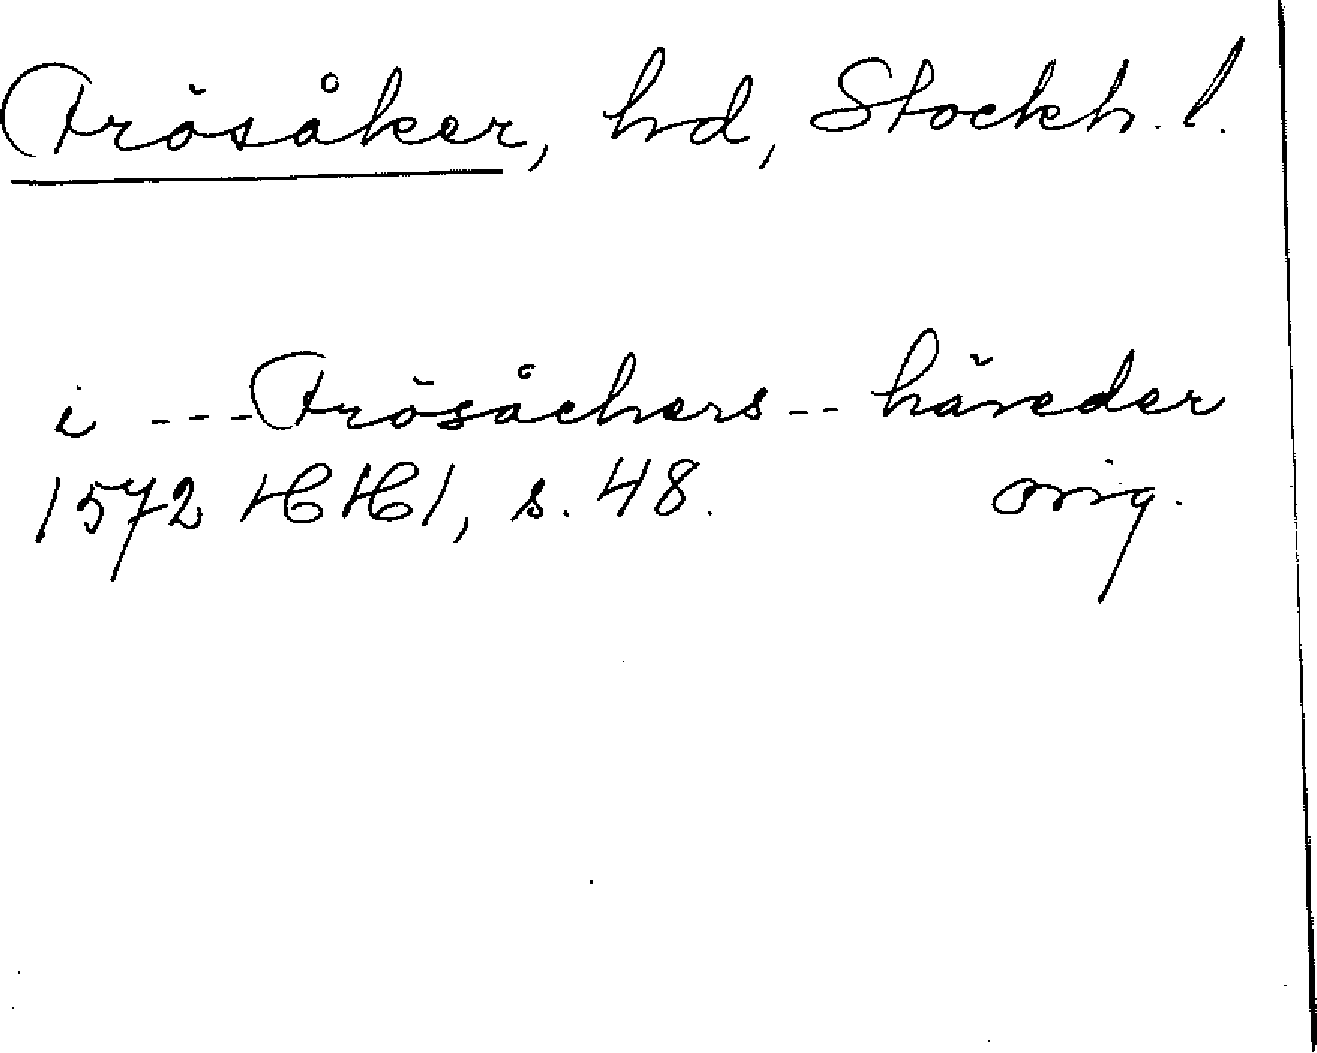 Frösåker, hd, Stockh. l.
i --- Frösåchers -- häreder
1572 HH1, s. 48. orig.